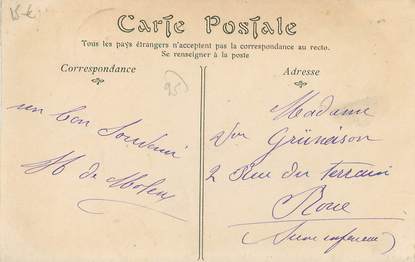 15 €
Carte Postale
Tous les pays étrangers n'acceptent pas la correspondance au recto.
Se renseigner à la poste
Correspondance
95
un bon Souvenir
M de
Adresse
Madame
Vve Grüneison
2 Rue du terrain
(Seine inférieure)